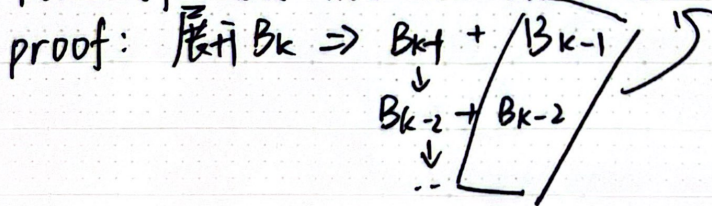 proof: 展开 Bk ⇒ Bk-1 + Bk-1
↓
Bk-2 + Bk-2
↓
...